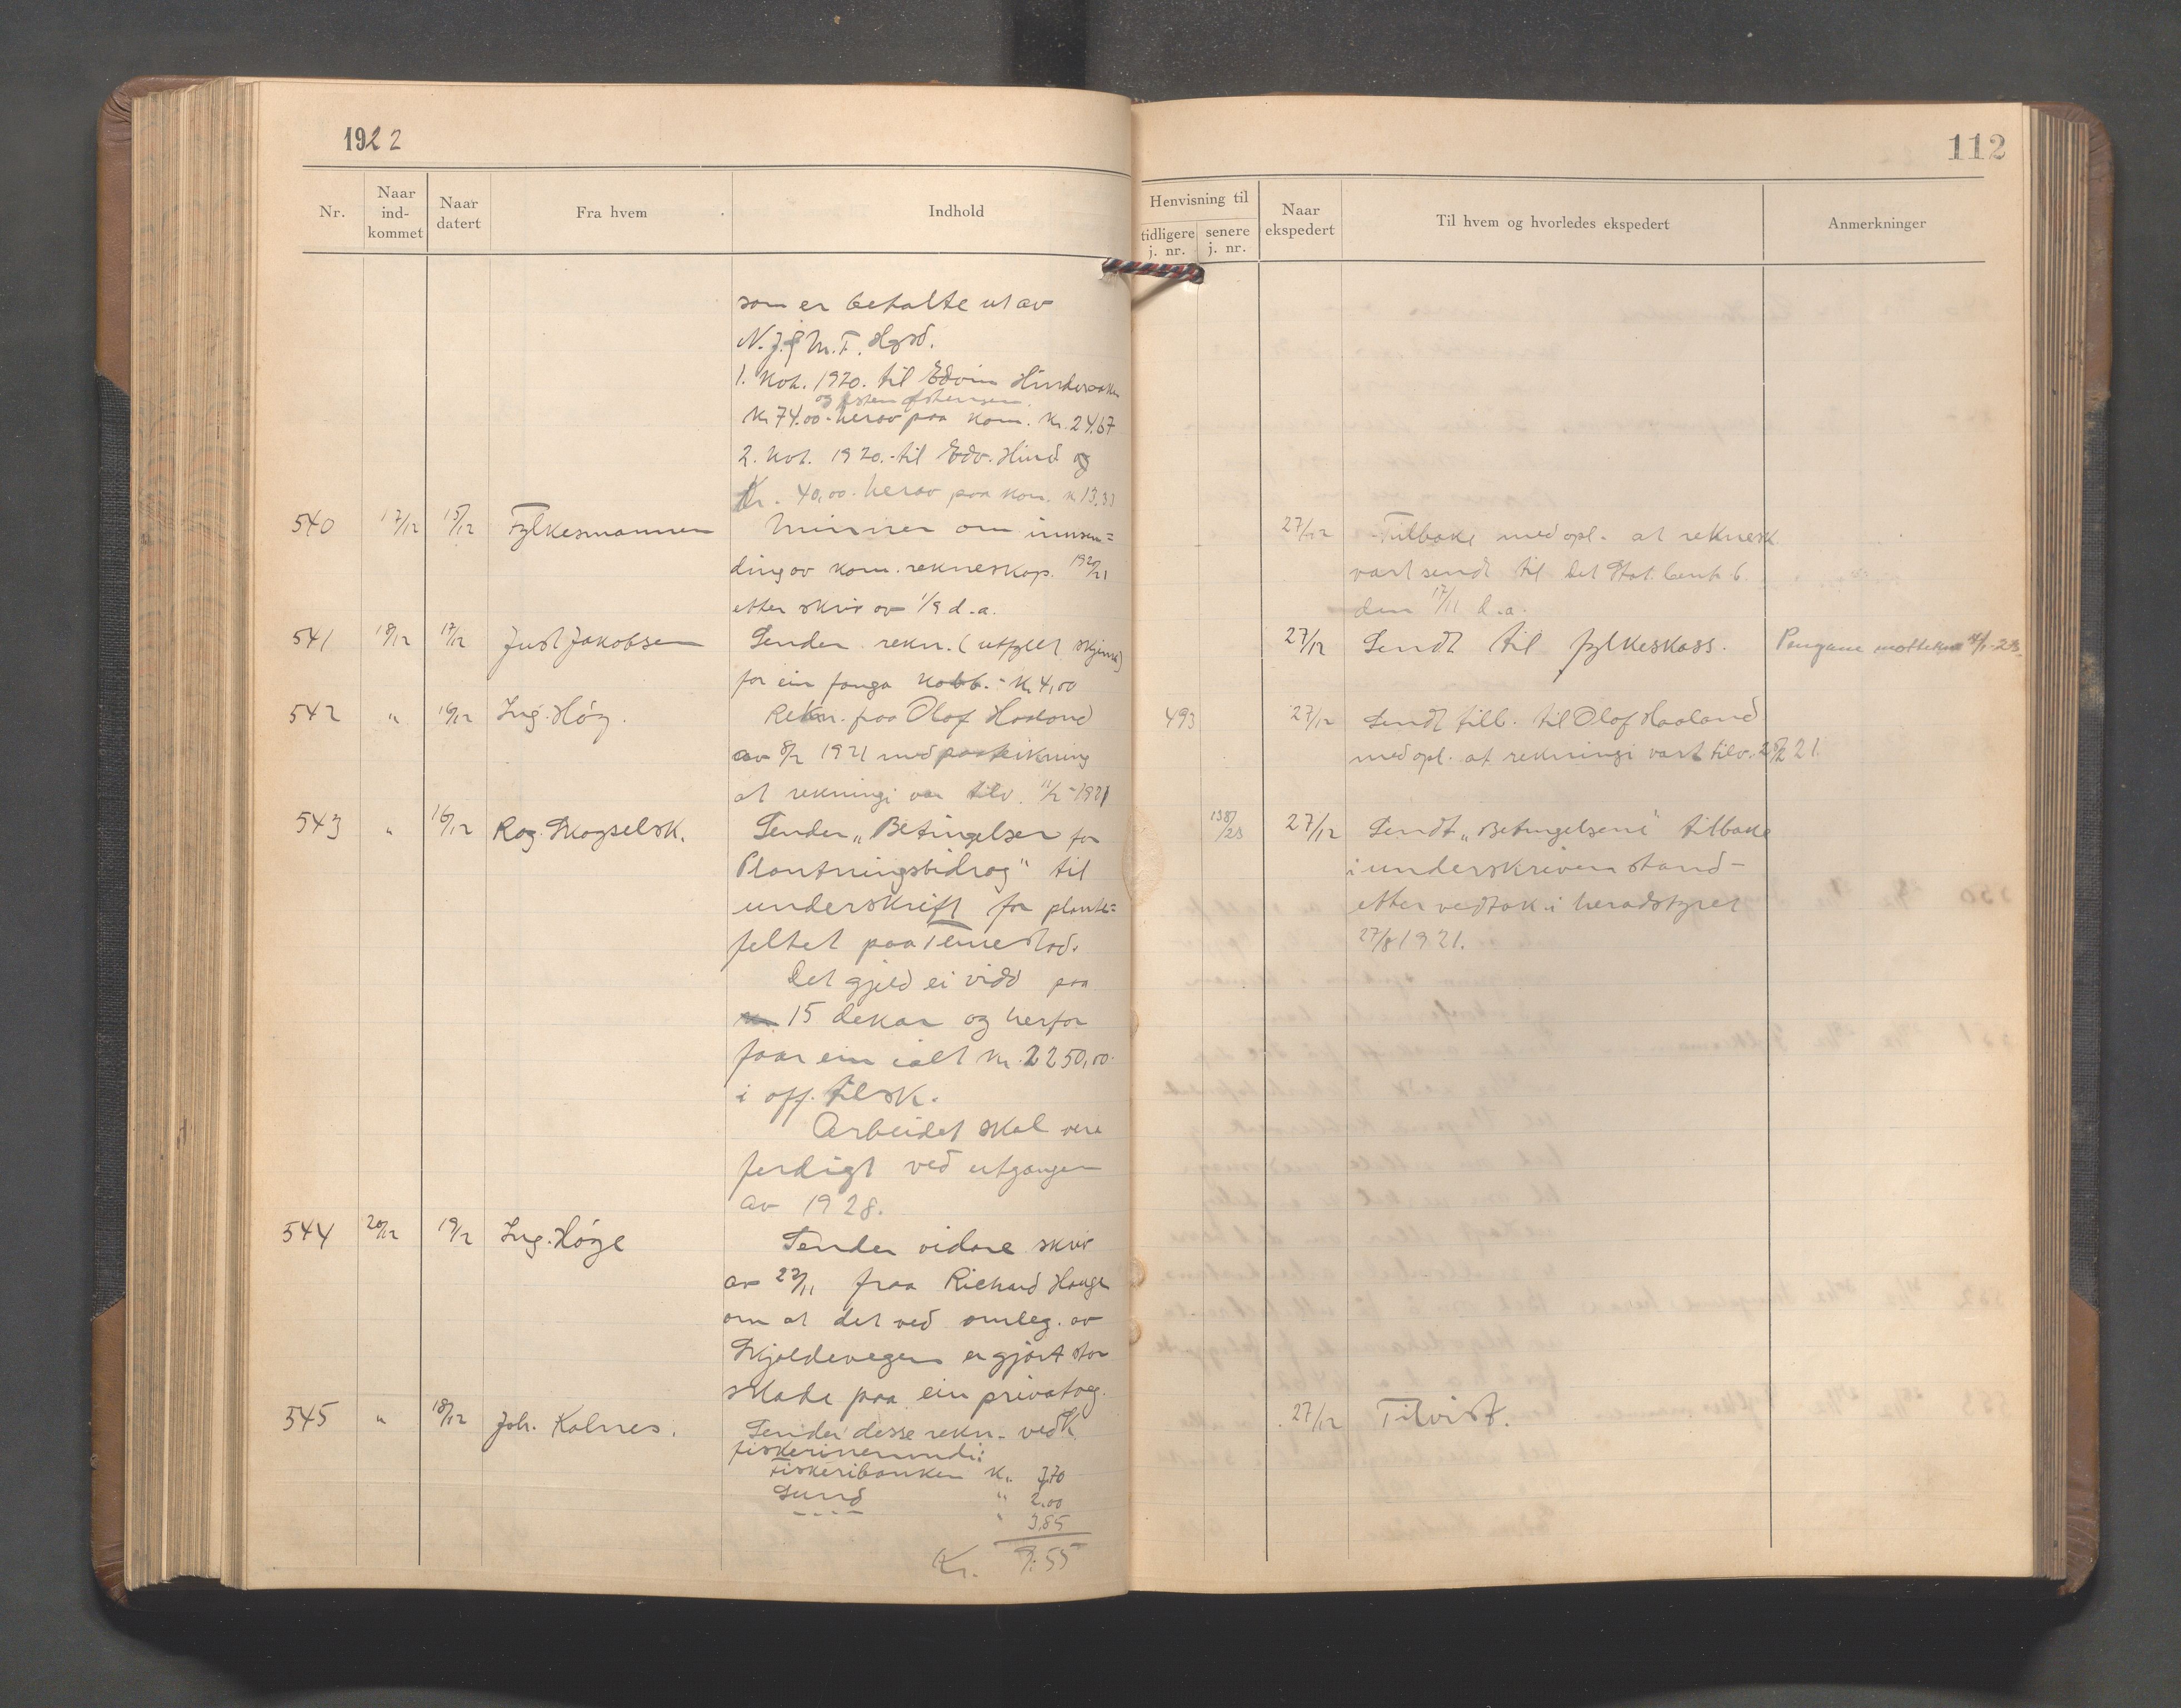 1922
112
Nr.
Naar ind-kommet
Naar datert
Fra hvem
Indhold
Henvisning til
tidligere j. nr.
senere j. nr.
Naar ekspedert
Til hvem og hvorledes ekspedert
Anmerkninger
som er betalte ut av
N. J. M. F. Hgsd.
1. Nov. 1920. til Edvin Hinderaaker
og
Kr 74.00 - herav paa kom. Kr. 24,67
2. Nov. 1920. - til Edv. Hind og
Kr. 40,00 - herav paa kom. kr 13,33
540 17/12 15/12 Fylkesmannen Minner om innsen= 27/12 Tilbake med opl. at reknesk
ding av kom. rekneskap. 1920/21 vart sendt til Det Stat. Cent. b.
etter skriv av 1/9 d.a. den 17/11 d.a.
541 18/12 17/12 Just Jakobsen Sender rekn. (utfyllt skjema) 27/12 Sendt til fylkeskass. Pengane mottekne 4/1-23.
for ein fanga kobb. - Kr 4,00
542 " 16/12 Ing. Høg. Rekn. fraa Olaf Haaland 493 27/12 Sendt tilb. til Olaf Haaland
av 8/2 1921 med paateikning med opl. at rekningi vart tilv. 25/2 21.
at rekningi var tilv. 11/2-1921
543 " 16/12 Rog. Skogselsk. Sender "Betingelser for 138/23 27/12 Sendt "Betingelsene" tilbake
Plantningsbidrag" til i underskriven stand -
underskrift for plante= etter vedtak i heradstyret
feltet paa Temestad. 27/8 1921.
Det gjeld ei vidd paa
kr. 15 dekar og herfor
faar ein ialt kr. 2250,00.
i off. tilsk.
Arbeidet skal vere
ferdigt ved utgangen
av 1928.
544 20/12 19/12 Ing. Høge Sender vidare skriv
av 22/11 fraa Richard Hauge
om at det ved omleg. av
Skjoldevegen er gjort stor
skade paa ein privatveg.
545 " 18/12 Joh. Kalnes. Sender desse rekn. vedk. 27/12 Tilvist.
fiskerinemndi:
Fiskeribanken Kr. 3,70
Sund " 2.00
- - - - " 3,85
Kr. 9.55